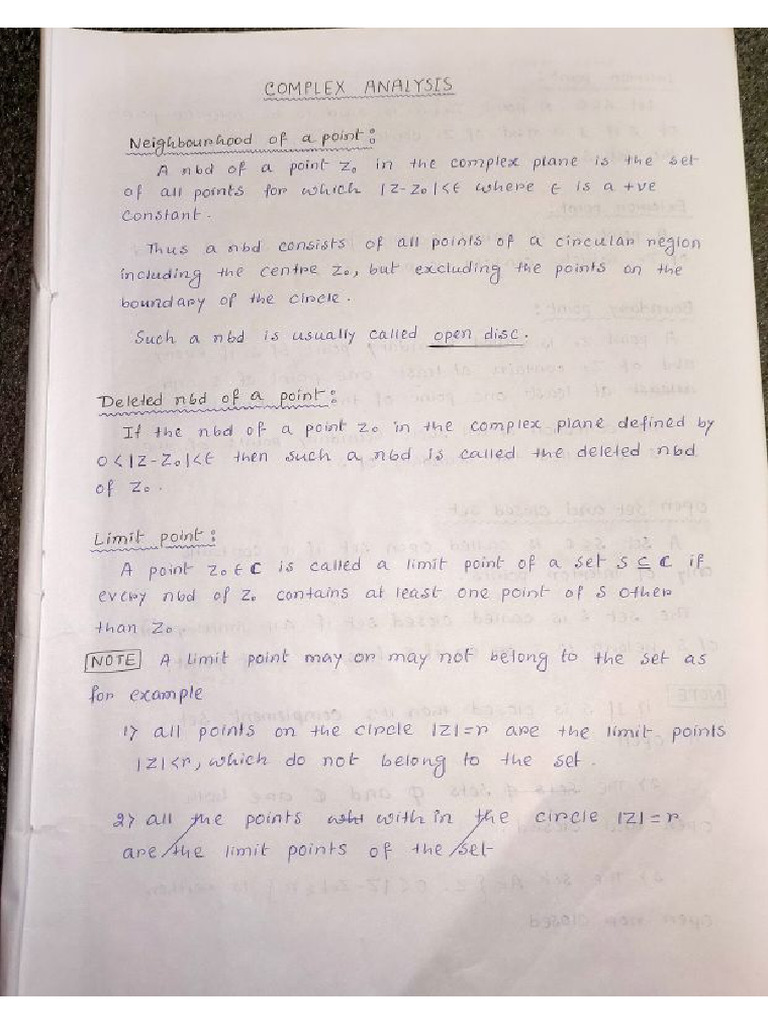 COMPLEX ANALYSIS
Neighbourhood of a point:
A nbd of a point z₀ in the complex plane is the set
of all points for which |z-z₀|<ϵ where ϵ is a +ve
constant.
Thus a nbd consists of all points of a circular region
including the centre z₀, but excluding the points on the
boundary of the circle.
Such a nbd is usually called open disc.
Deleted nbd of a point:
If the nbd of a point z₀ in the complex plane defined by
0<|z-z₀|<ϵ then such a nbd is called the deleted nbd
of z₀.
Limit point:
A point z₀ ϵ C is called a limit point of a set S ⊆ C if
every nbd of z₀ contains at least one point of S other
than z₀
NOTE A limit point may or may not belong to the set as
for example
1) all points on the circle |z|=r are the limit points
|z|<r, which do not belong to the set.
2) all the points with in the circle |z|=r
are the limit points of the set